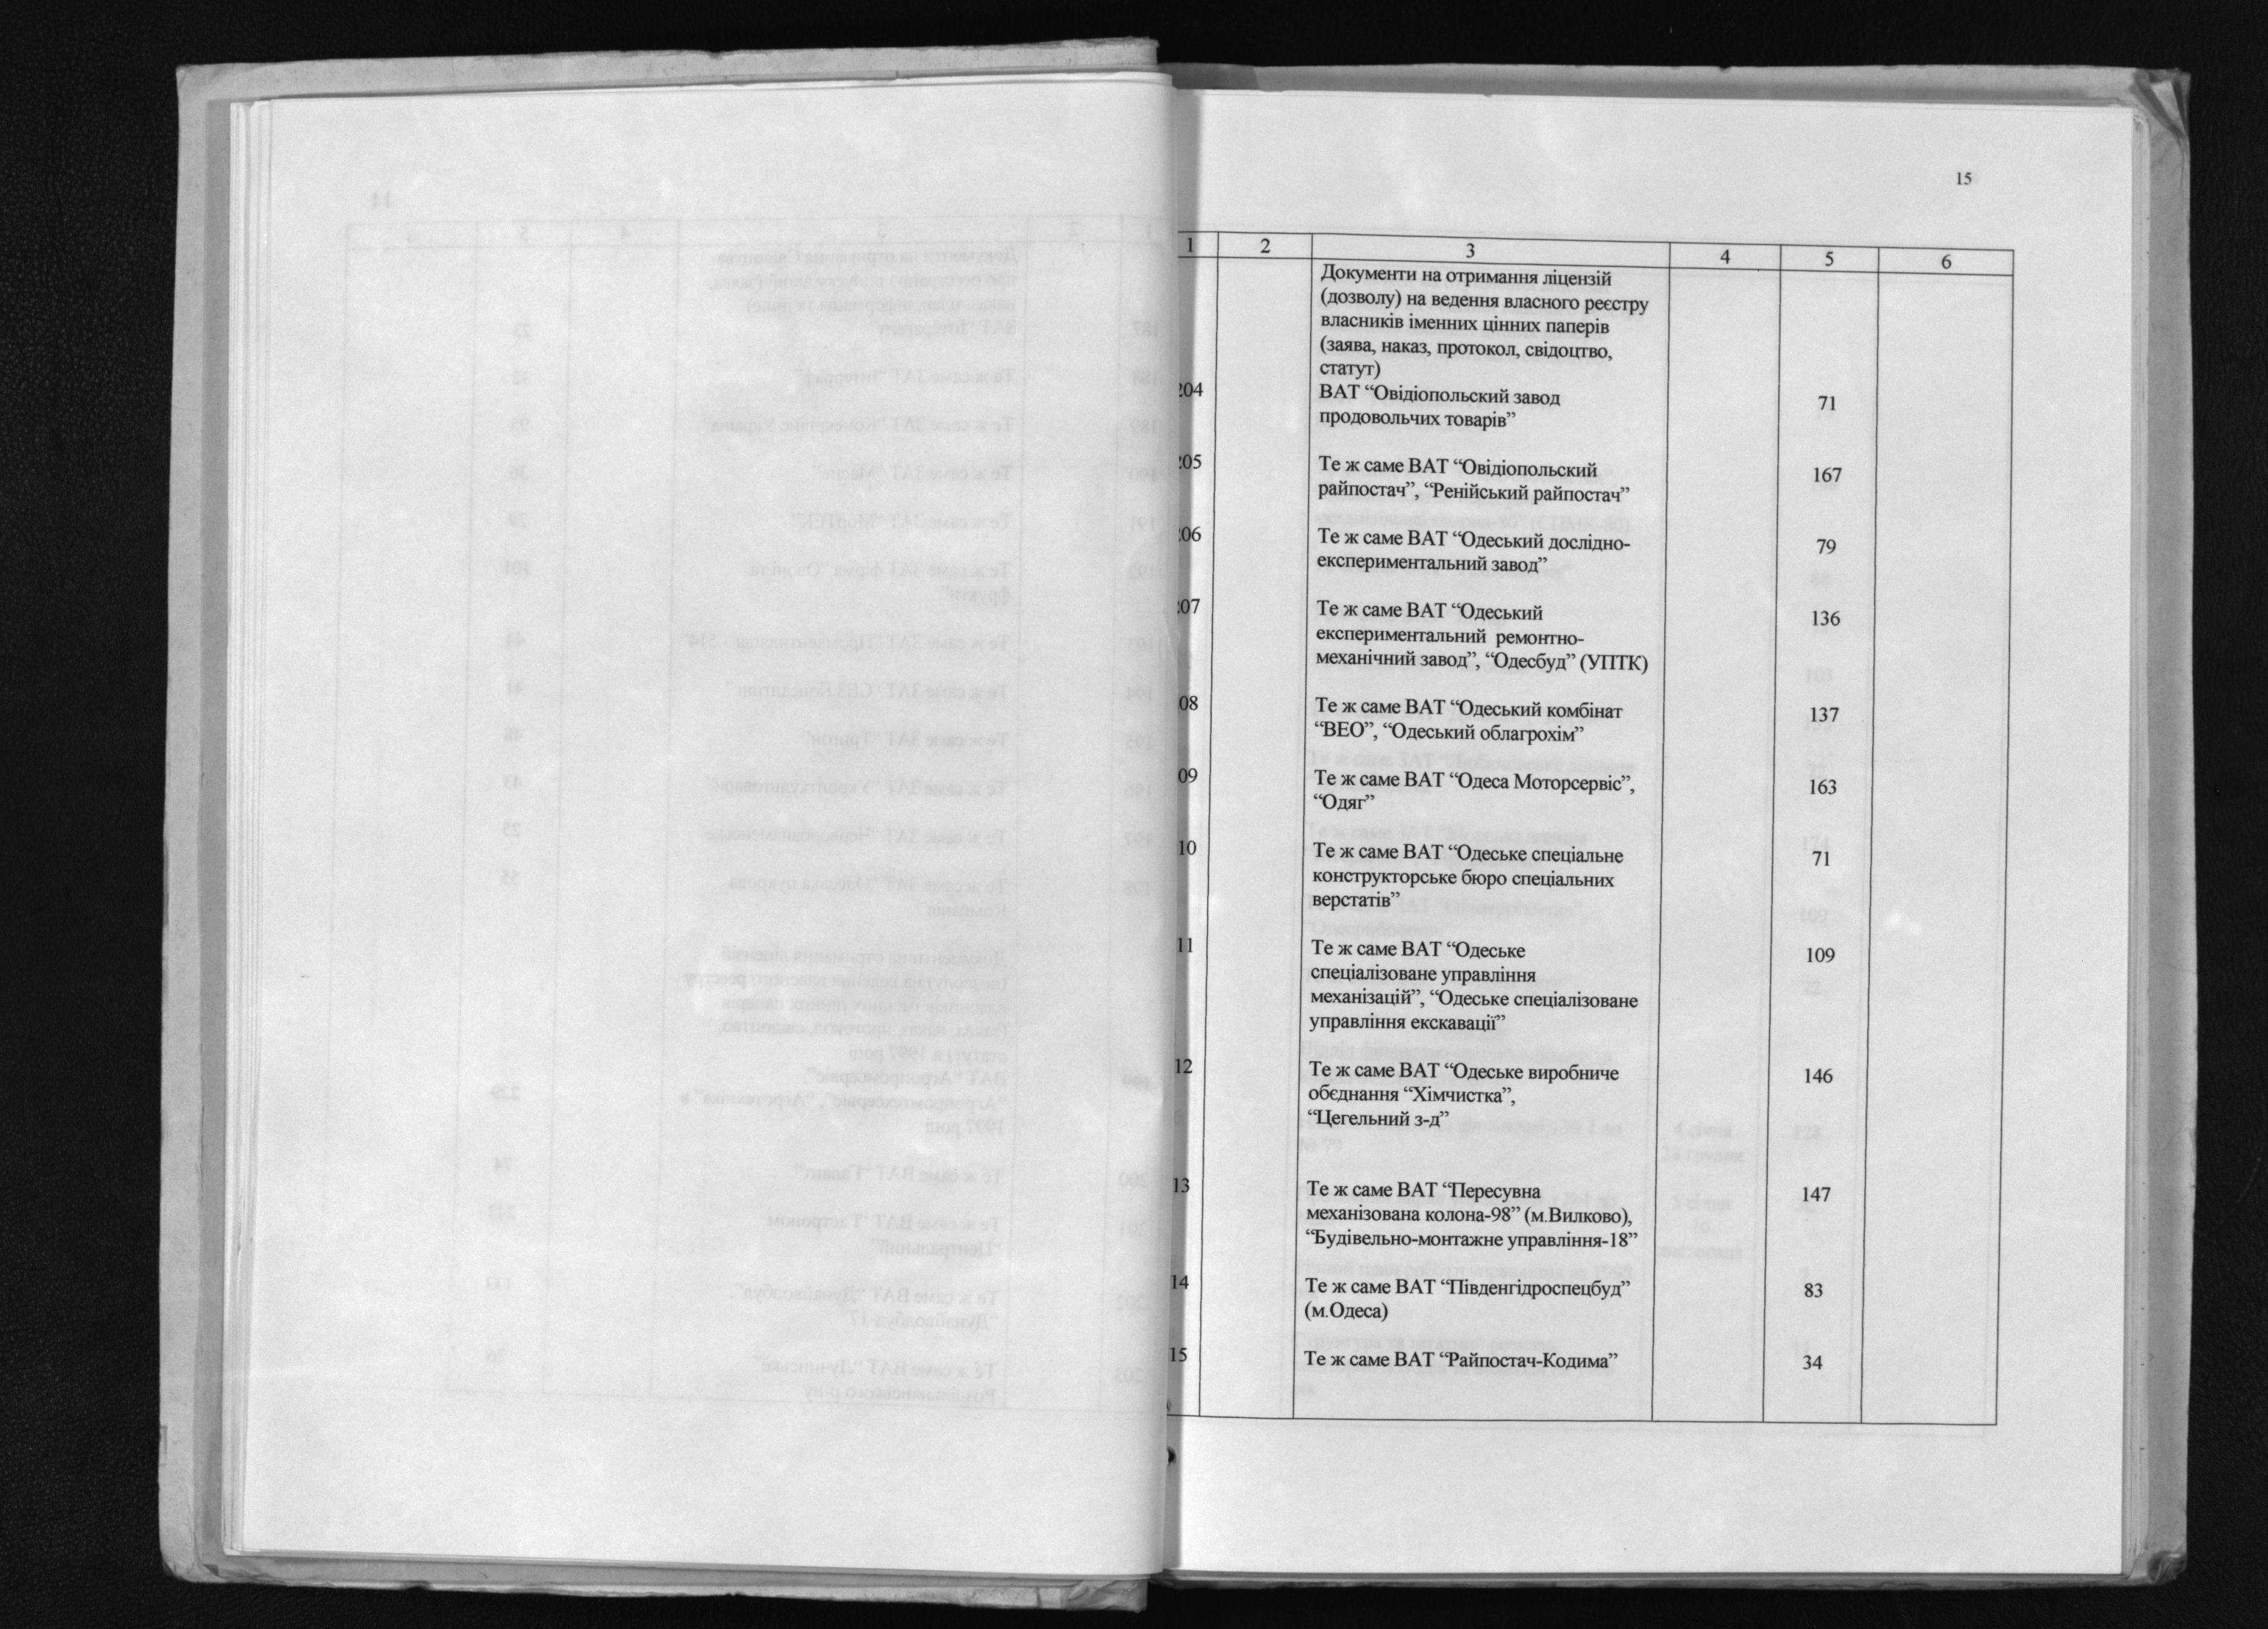 15
1 2 3 4 5 6
Документи на отримання ліцензій
(дозволу) на ведення власного реєстру
власників іменних цінних паперів
(заява, наказ, протокол, свідоцтво,
статут)
204 ВАТ “Овідіопольский завод 71
продовольчих товарів”
205 Те ж саме ВАТ “Овідіопольский 167
райпостач”, “Ренійський райпостач”
206 Те ж саме ВАТ “Одеський дослідно- 79
експериментальний завод”
207 Те ж саме ВАТ “Одеський 136
експериментальний ремонтно-
механічний завод”, “Одесбуд” (УПТК)
08 Те ж саме ВАТ “Одеський комбінат 137
“ВЕО”, “Одеський облагрохім”
09 Те ж саме ВАТ “Одеса Моторсервіс”, 163
“Одяг”
10 Те ж саме ВАТ “Одеське спеціальне 71
конструкторське бюро спеціальних
верстатів”
11 Те ж саме ВАТ “Одеське 109
спеціалізоване управління
механізацій”, “Одеське спеціалізоване
управління екскавації”
12 Те ж саме ВАТ “Одеське виробниче 146
обєднання “Хімчистка”,
“Цегельний з-д”
13 Те ж саме ВАТ “Пересувна 147
механізована колона-98” (м.Вилково),
“Будівельно-монтажне управління-18”
14 Те ж саме ВАТ “Південгідроспецбуд” 83
(м.Одеса)
15 Те ж саме ВАТ “Райпостач-Кодима” 34